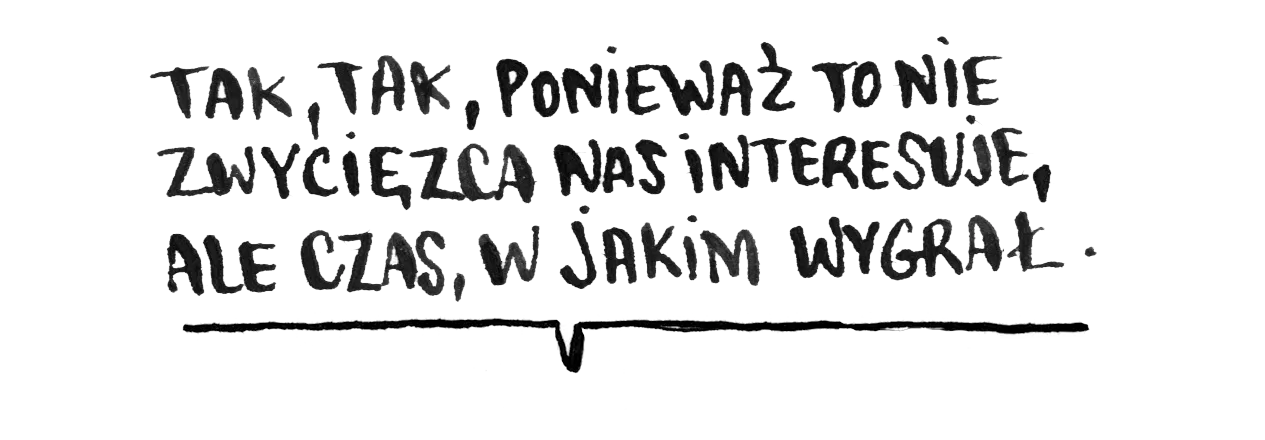 TAK, TAK, PONIEWAŻ TO NIE
ZWYCIĘZCA NAS INTERESUJE,
ALE CZAS, W JAKIM WYGRAŁ.